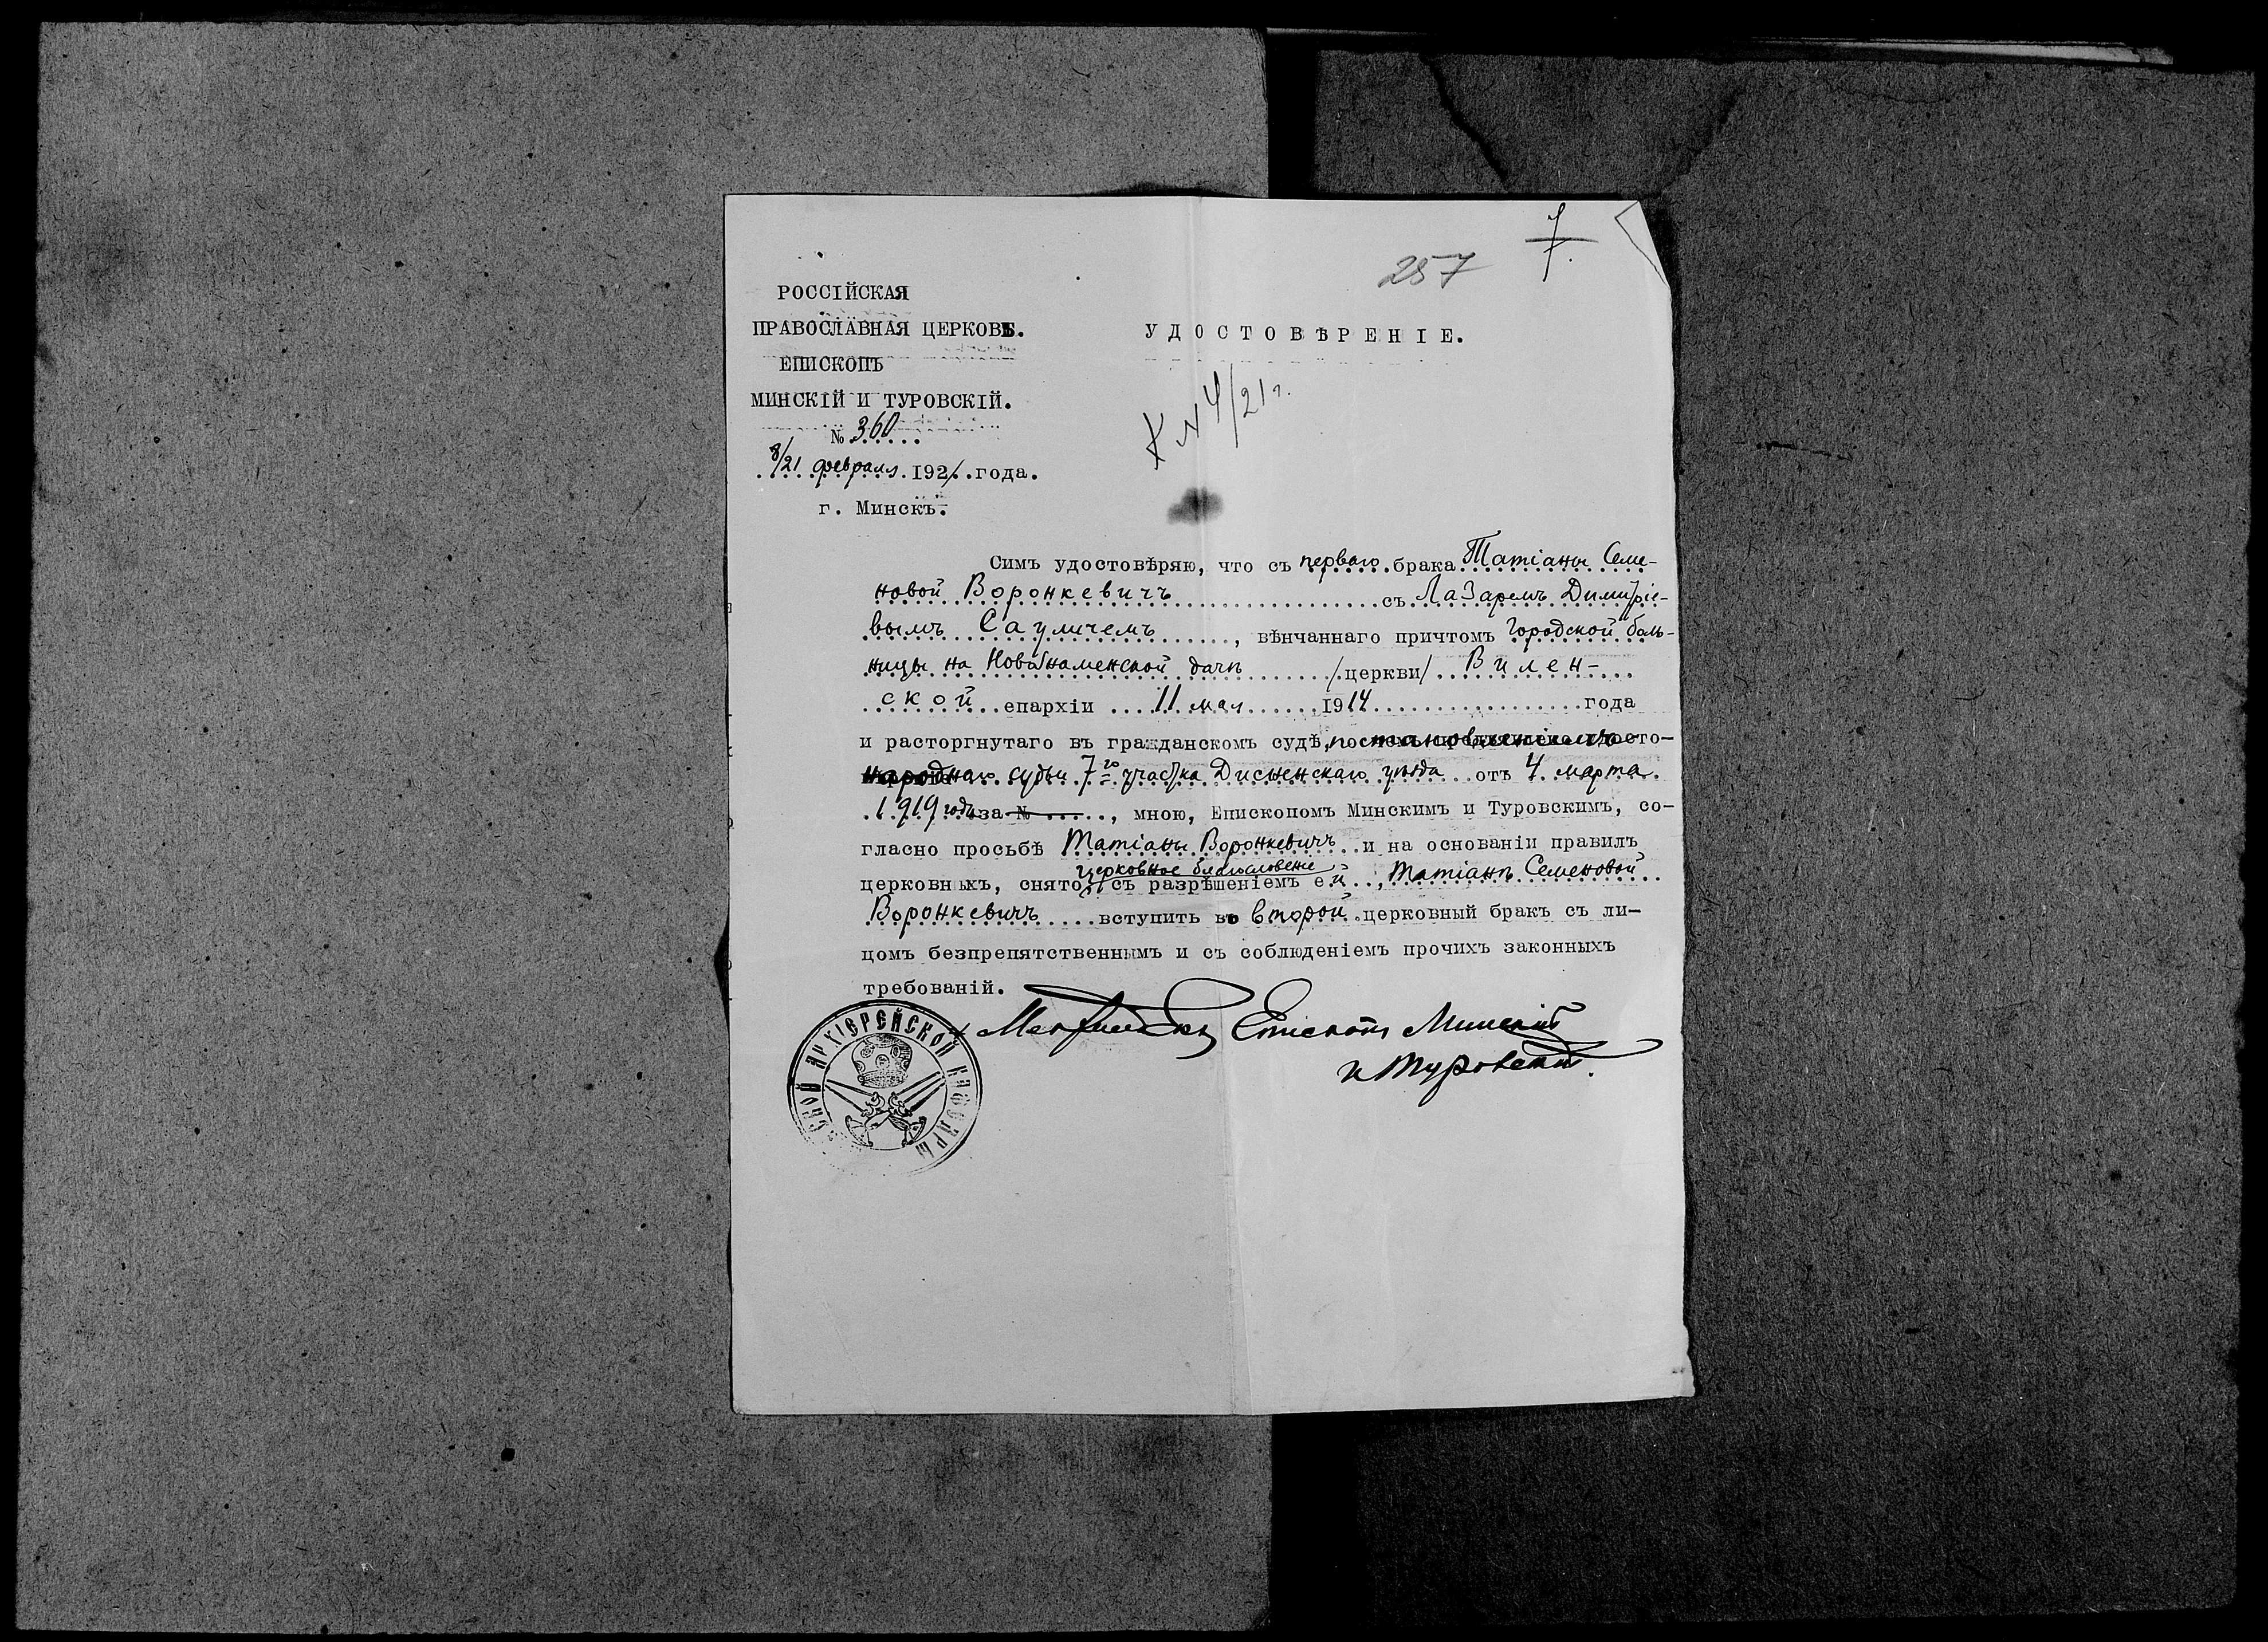 7
257
РОССІЙСКАЯ
ПРАВОСЛАВНАЯ ЦЕРКОВЬ.
ЕПИСКОПЪ
МИНСКІЙ И ТУРОВСКІЙ.
№ 360
8/21 февраля 1921 года.
г. Минскъ.
УДОСТОВѢРЕНІЕ.
К N 4/21 г.
Симъ удостовѣряю, что съ перваго брака Татіаны Семе-
новой Воронкевичъ съ Лазаремъ Димитріе-
вымъ Сауличемъ, вѣнчаннаго причтомъ Городской боль-
ницы на Новознаменской дачѣ /церкви/ Вилен-
ской епархіи 11 мая 1914 года
и расторгнутаго въ гражданскомъ судѣ, постановленіемъ
народнаго судьи 7го участка Дисненскаго уѣзда отъ 4 марта
1919 года за №, мною, Епископомъ Минскимъ и Туровскимъ, со-
гласно просьбѣ Татіаны Воронкевичъ и на основаніи правилъ
церковное благословеніе
церковныхъ, снято съ разрѣшеніемъ ей, Татіанѣ Семеновой
Воронкевичъ вступить во второй церковный бракъ съ ли-
цомъ безпрепятственнымъ и съ соблюденіемъ прочихъ законныхъ
требованій.
Мелхиседекъ Епископъ Минскій
и Туровскій.
СКОЙ АРХІЕРЕЙСКОЙ КАФЕДРЫ